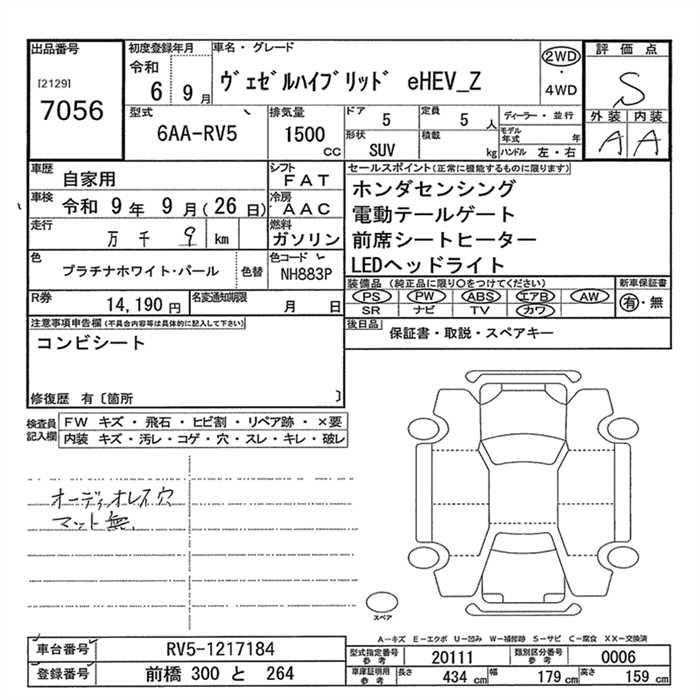 出品番号
[2129]
7056
初度登録年月
令和
6 9月
車名・グレード
ヴェゼルハイブリッド eHEV_Z
2WD
・
4WD
評価点
S
外装 内装
A A
型式
6AA-RV5
排気量
1500
cc
ドア
5
定員
5 人
形状
SUV
積載
kg
ディーラー・並行
モデル年式 年
ハンドル 左・右
車歴
自家用
シフト
FAT
車検
令和 9年 9月(26日)
冷房
AAC
走行
万 千 9 km
燃料
ガソリン
色
プラチナホワイト・パール
色替
色コード
NH883P
R券
14,190 円
名変通知期限
月 日
セールスポイント(正常に機能するものに限ります)
ホンダセンシング
電動テールゲート
前席シートヒーター
LEDヘッドライト
装備品 (純正品に限り〇をつけてください)
PS PW ABS エアB AW
SR ナビ TV カワ
新車保証書
有・無
後日品
保証書・取説・スペアキー
注意事項申告欄(不具合内容等は具体的に記入して下さい)
コンビシート
修復歴 有〔箇所 〕
検査員記入欄
FW キズ・飛石・ヒビ割・リペア跡・×要
内装 キズ・汚レ・コゲ・穴・スレ・キレ・破レ
オーディオレス穴
マット無
スペア
A-キズ E-エクボ U-凹み W-補修跡 S-サビ C-腐食 XX-交換済
車台番号
RV5-1217184
登録番号
前橋 300 と 264
型式指定番号参考
20111
類別区分番号参考
0006
車庫証明用参考
長さ 434 cm 幅 179 cm 高さ 159 cm